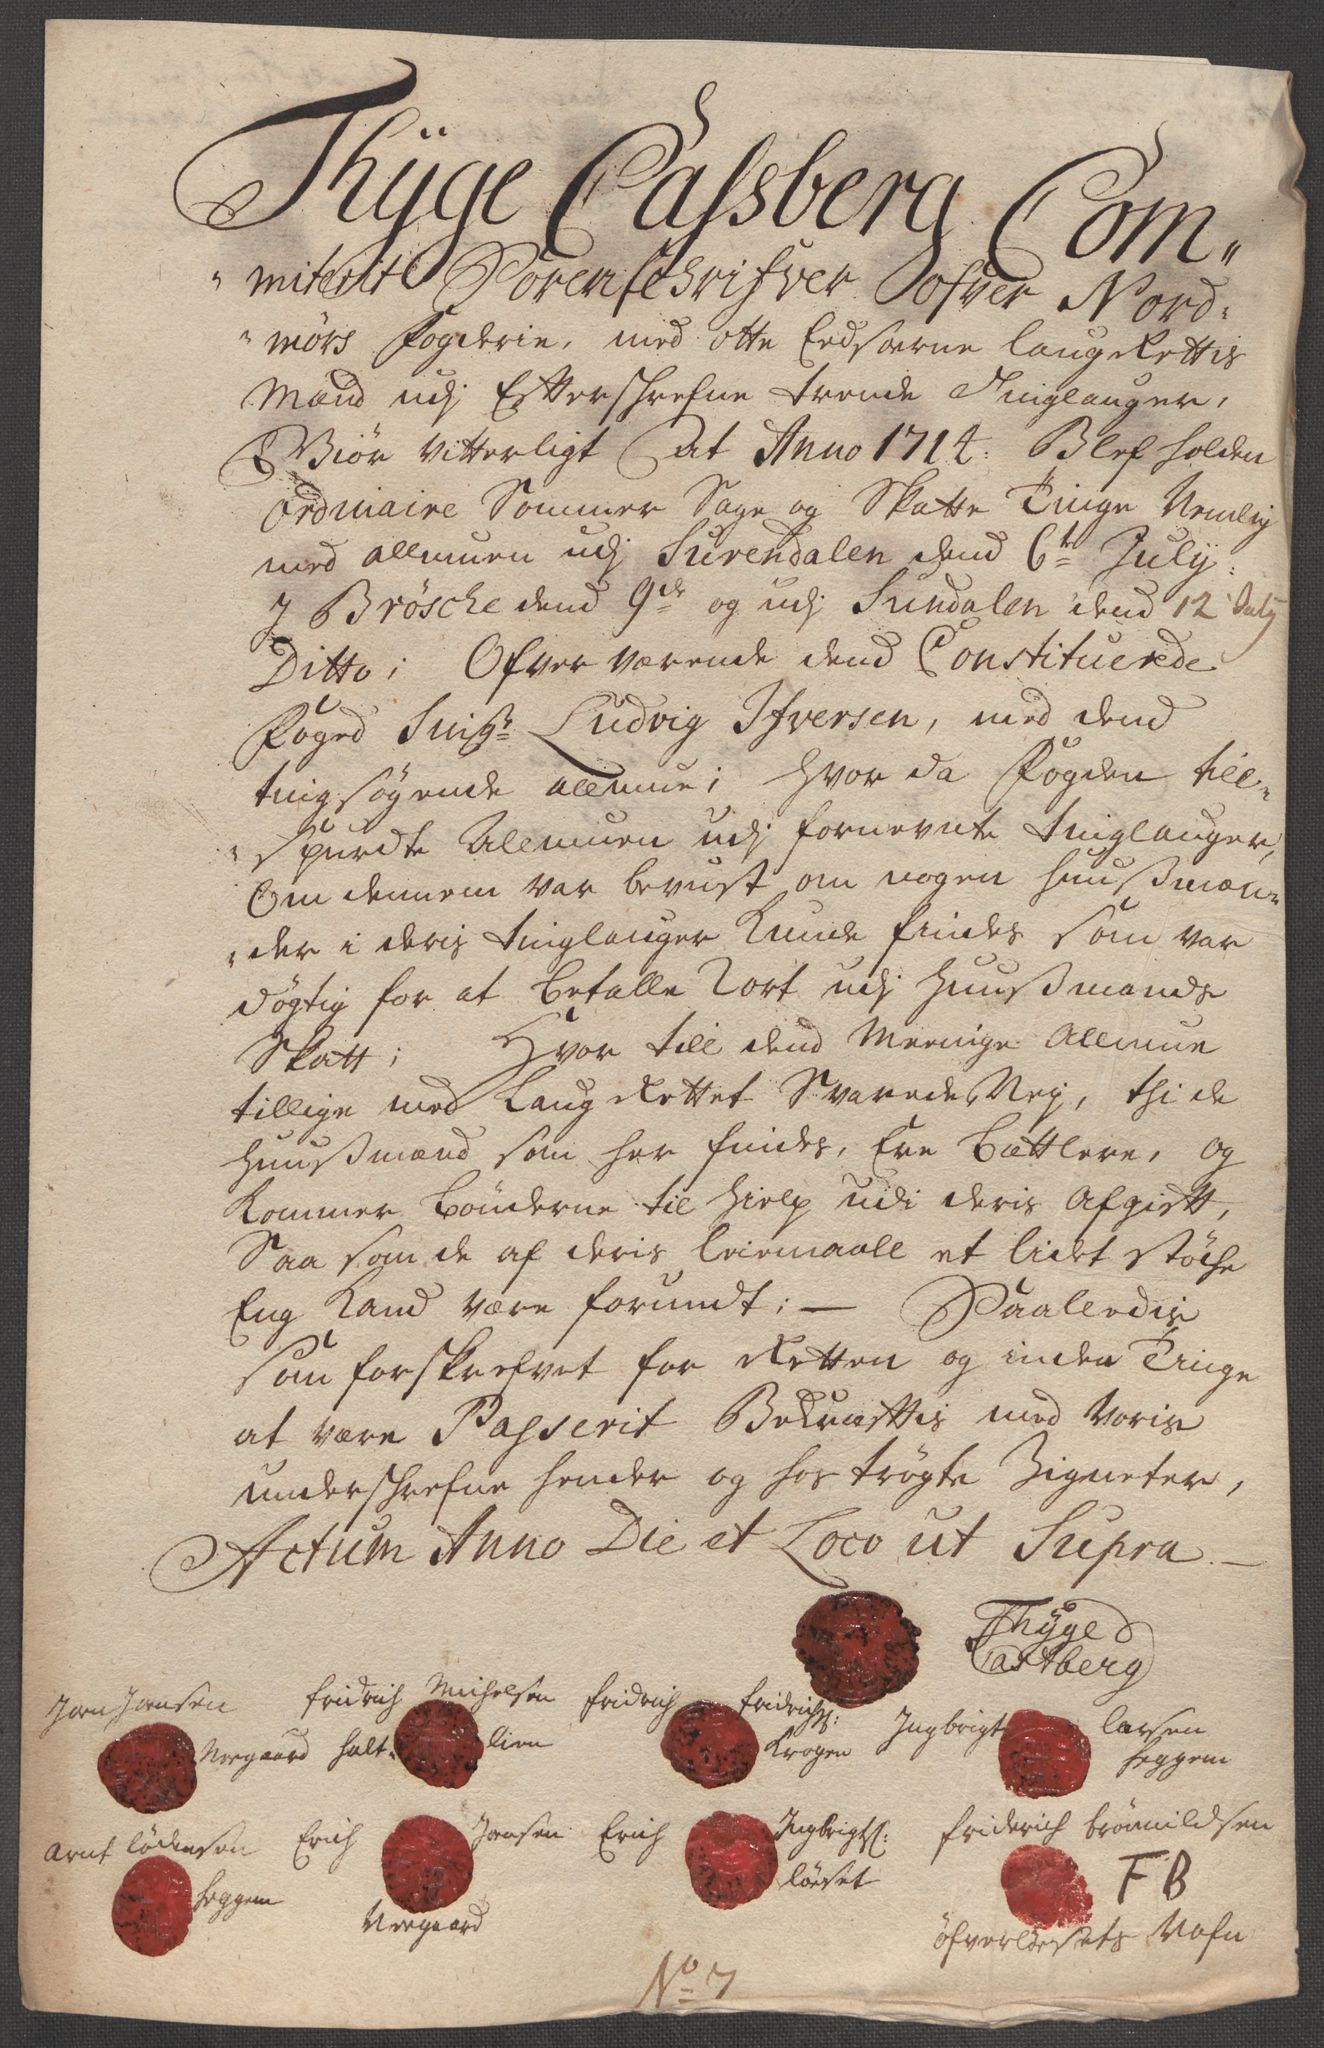 Thÿge Cassberg Com„
„miterit Sorenschrifver ofver Nord„
„mørs Fogderie, med otte Eedsorne laugRettis
Mænd udj Effterschrefne trende Tinglauger,
Giør vitterligt at Anno 1714: Blef holden
Ordinaire Sommer Sage og Skatte Tinge Nemlig
med allmuen udj Surendalen dend 6te July:
J Brösche dend 9de og udj Sundalen dend 12 July
Ditto; Ofverværende dend Constituerede
Foged Snisr Ludvig Ifversen, med dend
tingsøgende allmue; hvor da Fogden till„
„spurdte Allmuen udj fornevnte tinglauger,
Om dennem var bevust om nogen huusmæn„
„der i deris tinglauger kunde findes som var
døgtig for at betalle Tort udj Huusmands
Skatt; Hvor till dend Meenige Allmue
tillige med LaugRettet Svarede, Nej, thi de
huusmænd som her findes, Ere bettlere, og
kommer bønderne til hielp udi deris Afgift,
Saa som de af deris leiemaall et lidet støche
Eng kand være forundt; — Saaledis
som forskrefvet for Retten og inden Tinge
at være Passerit Bekræfftis med voris
underschrefne hender og hos trøgte Zigneter,
Actum Anno Die et Loco ut Supra —
Thÿge
Castberg
Joen Joensen fridrich Michelsen fridrich fridrichs: Ingbrigt larsen
Neergaard halt„ lien Krogen heggem
Arnt lødensen Erich Joensen Erich Ingbrigts: friderich brønnildsen
heggem Neergaard løeset FB
öfverløesets Nafn
No 7